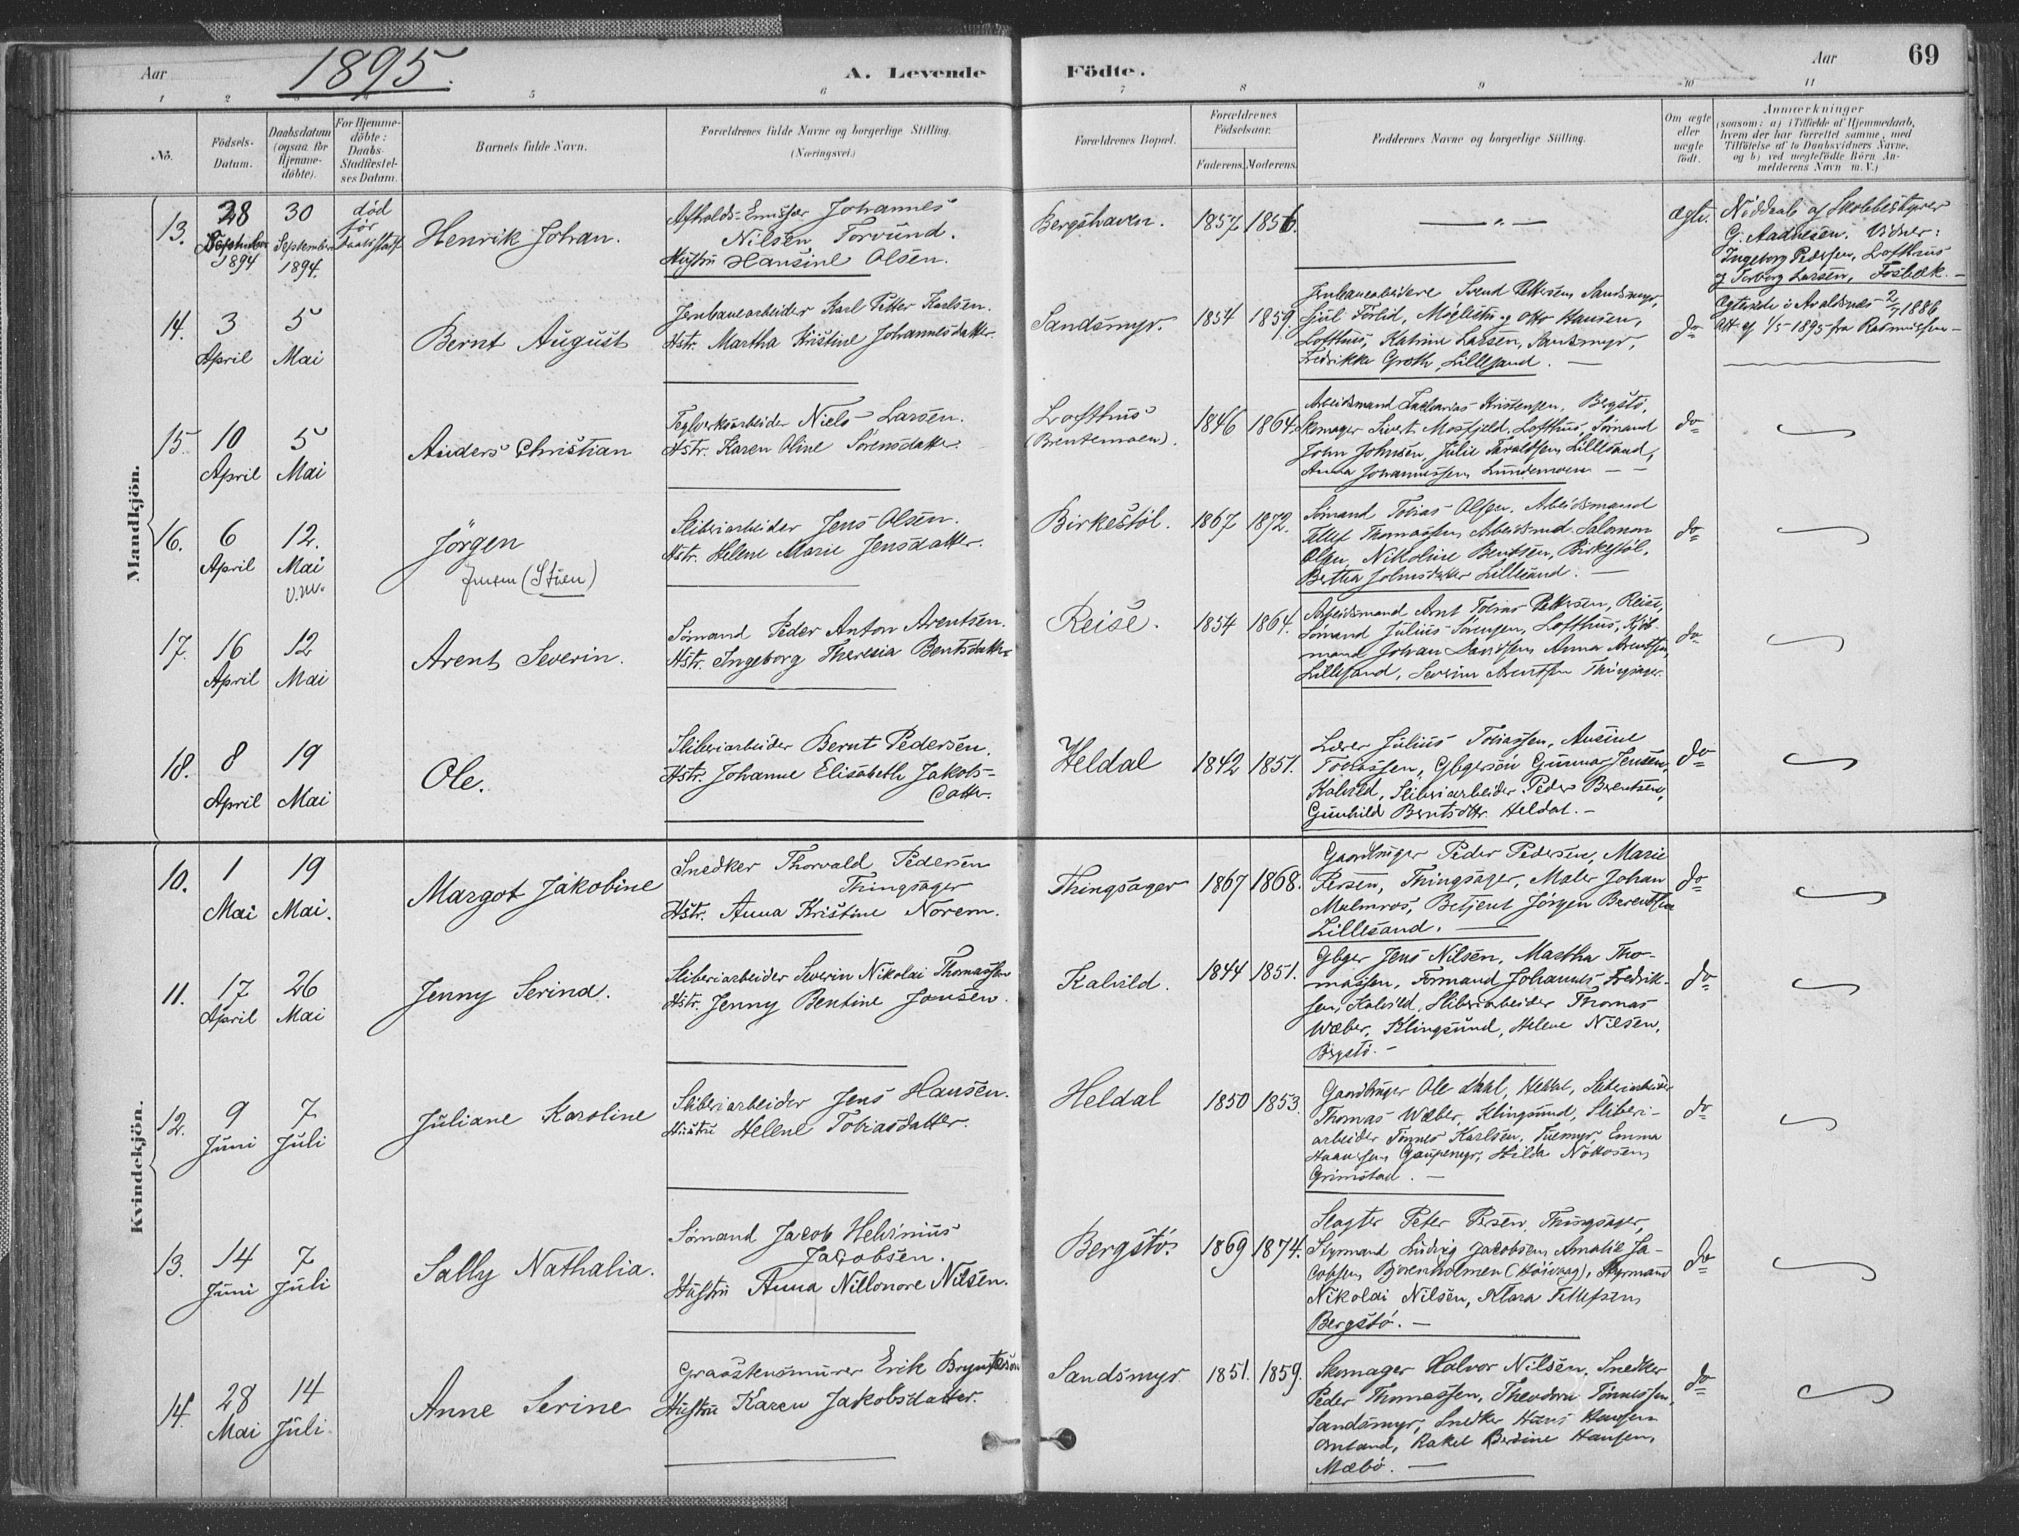 Aar
1895.
A. Levende Födte.
Aar
69
1 2 3 4 5 6 7 8 9 10 11
No.
Födsels-
Datum.
Daabsdatum
(ogsaa for
Hjemme-
döbte).
For Hjemme-
döbte:
Daabs-
Stadfæstel-
ses Datum.
Barnets fulde Navn.
Forældrenes fulde Navne og borgerlige Stilling.
(Næringsvei.)
Forældrenes Bopæl.
Forældrenes
Födselsaar.
Faderens. Moderens.
Faddernes Navne og borgerlige Stilling.
Om ægte
eller
uægte
født.
Anmærkninger
(saasom: a) i Tilfælde af Hjemmedaab,
hvem der har forrettet samme, med
Tilföielse af to Daabsvidners Navne,
og b) ved uægtefödte Börn, An-
melderens Navn m. V.)
Mandkjön.
13.
28
September
1894
30
September
1894.
död
før
Henrik Johan.
Johannes
Nilsen Torvund.
Hustru Hansine Olsen.
Bergshaven.
1857 1856.
— " —
ægte.
Nöddaab af
G. Aadnesen. Vidner:
Ingeborg Pedersen, Lofthus
14.
3
April
5
Mai
Bernt August
Jernbanearbeider Karl Petter Karlsen.
Hstr. Martha Kristine Johannesdatter.
Sandsmyr.
1854 1859.
Jernbanearbeidere Svend Pettersen, Sandsmyr,
Otto Hansen,
Lofthus, Katrine Larsen, Sandsmyr,
Fredrikke Groth, Lillesand. —
do
Ægteviede i Avaldsnes 2/7 1886
15
10
April
5
Mai
Anders Christian
Teglverksarbeider Niels Larsen.
Hstr. Karen Oline Sörensdatter.
Lofthus
(Brentemoen).
1846 1864.
Arbeidsmand Zacharias Kristensen, Bergstö,
Skomager Sivert Mosfjeld, Lofthus, Sömand
John Johnsen, Julie Taraldsen, Lillesand,
Anna Johannessen, Lundemoen — —
do
16.
6
April
12.
Mai
v.m.
Jörgen
Jensen (Stöen)
Sliberiarbeider Jens Olsen.
Hstr. Helene Marie Jensdatter.
Birkestöl.
1867 1872.
Sömand Tobias Olsen, Arbeidsmand
Tellef Thomassen, Arbeidsmd. Salomon
Olsen, Nikoline Bentsen, Birkestöl,
Bertha Johnsdatter Lillesand. —
do
17.
16
April
12
Mai
Arent Severin.
Sömand Peder Anton Arentsen.
Hstr. Ingeborg Theresia Bentsdatter
Reise.
1854 1864.
Arbeidsmand Arnt Tobias Pettersen, Reise,
Sömand Julius Sörensen, Lofthus, Kjöb-
mand Johan Davidsen, Anna Arentsen,
Lillesand, Severine Arentsen Thingsager.
do
18.
8
April
19
Mai
Ole.
Sliberiarbeider Bernt Pedersen.
Hstr. Johanne Elisabeth Jakobs-
datter.
Heldal
1842 1851.
Lærer Julius Tobiassen, Ausine
Tobiassen, Gbgersön Gunnar Jensen,
Kalvild, Sliberiarbeider Peder Berentsen,
Gunhild Berntsdtr. Heldal. —
do
Kvindekjön.
10.
1
Mai
19
Mai.
Margot Jakobine
Snedker Thorvald Pedersen
Thingsager
Hstr. Anna Kristine Norem.
Thingsager
1867 1868.
Gaardbruger Peder Pedersen, Marie
Persen, Thingsager, Maler Johan
Malmros, Betjent Jörgen Berentsen
Lillesand. —
do
11.
17
April
26
Mai
Jenny Serina.
Sliberiarbeider Severin Nikolai Thomassen
Hstr. Jenny Bentine Jansen.
Kalvild.
1844 1851.
Gbger Jens Nilsen, Martha Tho-
massen, Formand Johannes Fredrik-
sen, Kalvild, Sliberiarbeider Thomas
Wæber, Klingsund, Helene Nilsen,
Bergstö. —
do
12.
9
Juni
7
Juli
Juliane Karoline
Sliberiarbeider Jens Hansen.
Hustru Helene Tobiasdatter.
Heldal
1850 1853.
Gaardbruger Ole Dahl, Heldal, Sliberiarbeider
Thomas Wæber, Klingsund, Sliberi-
arbeider Tönnes Karlsen, Tuemyr, Emma
Haansen, Gaupemyr, Hilda
Grimstad. —
do
13.
14
Juni
7
Juli
Sally Nathalia.
Sömand Jacob Helvinius
Jacobsen.
Hustru Anna Nillonore Nilsen.
Bergstö.
1869 1874.
Slagter Peter Persen, Thingsager,
Styrmand Ludvig Jacobsen, Amalie Ja-
cobsen, Bjorenholmen (Höivaag), Styrmand
Nikolai Nilsen, Klara Tellefsen,
Bergstö. —
do
14.
28
Mai
14
Juli.
Anne Serine
Graastensmurer Erik Bryntesön
Hustru Karen Jakobsdatter.
Sandsmyr
1851. 1859.
Skomager Halvor Nilsen, Snedker
Peder Thomassen, Theodora Tönnessen,
Sandsmyr, Snedker Hans Hansen
Rakel Berdine Hansen,
Mæbö. —
do